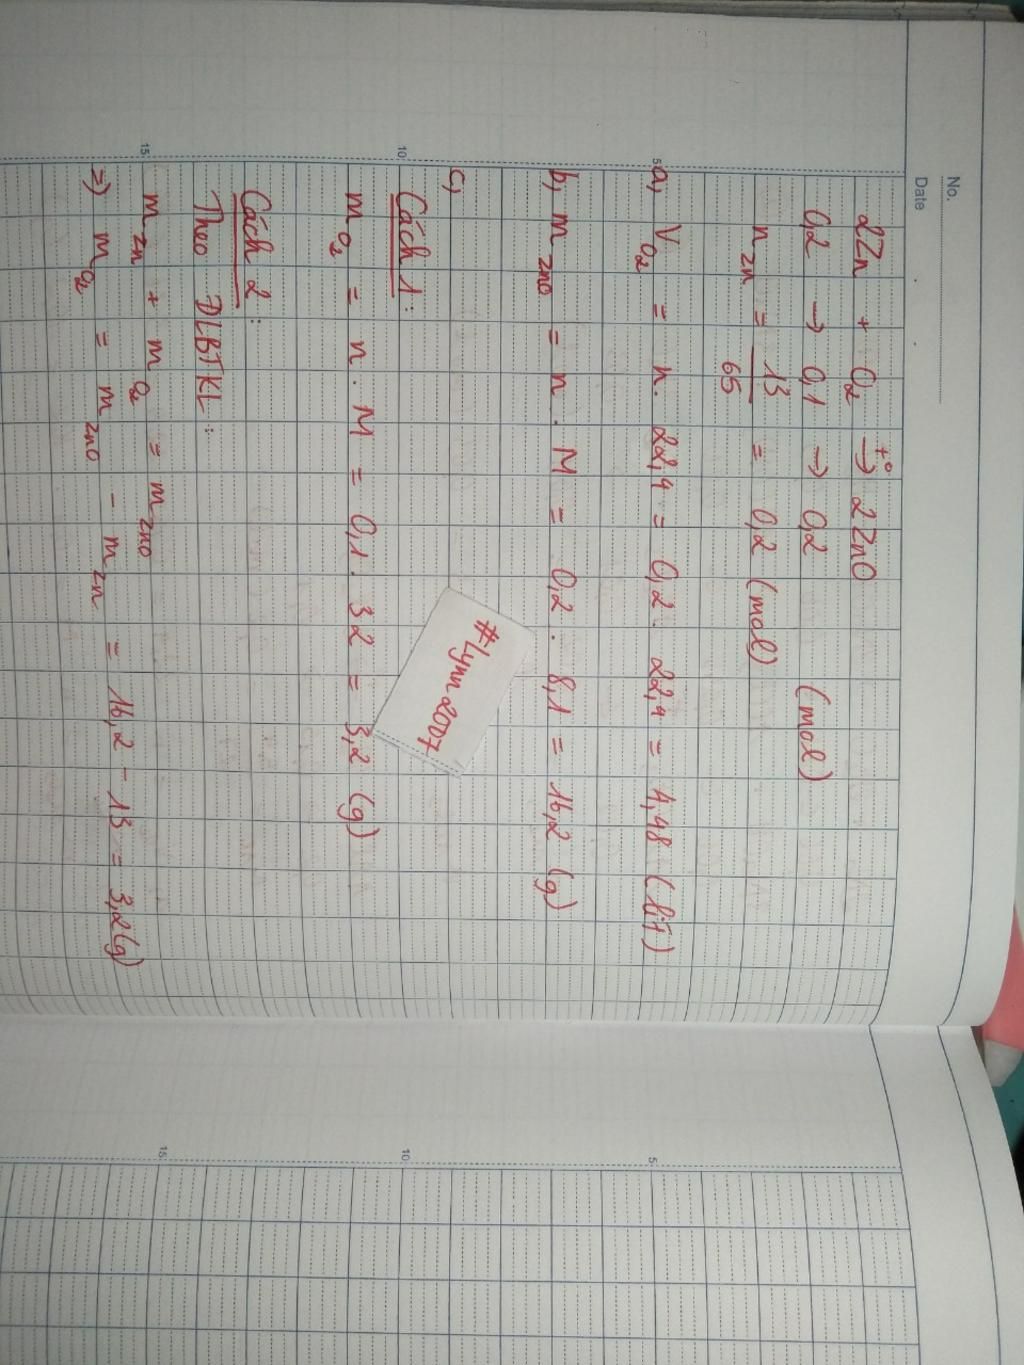 No.
Date
2Zn + O₂ →t° 2ZnO
0,2 → 0,1 → 0,2 (mol)
n Zn = 13/65 = 0,2 (mol)
5
a, V O₂ = n. 22,4 = 0,2. 22,4 = 4,48 (lít)
b, m ZnO = n. M = 0,2. 8,1 = 16,2 (g)
c,
10
Cách 1:
m O₂ = n. M = 0,1. 32 = 3,2 (g)
Cách 2:
Theo ĐLBTKL:
15
m Zn + m O₂ = m ZnO
=) m O₂ = m ZnO - m Zn = 16,2 - 13 = 3,2(g)
#Lynn2007
5
10
15